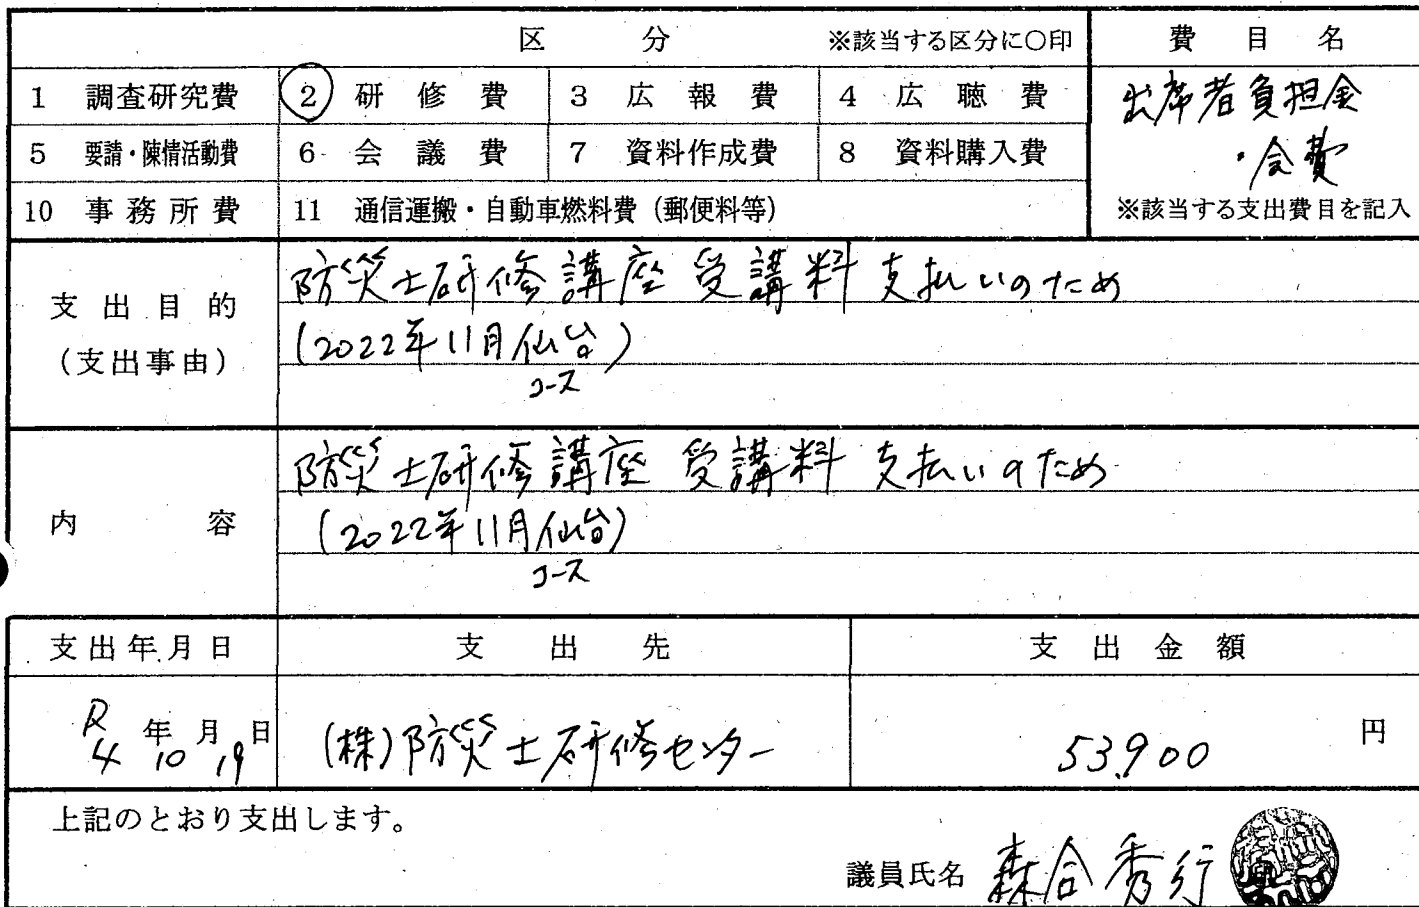 区 分 ※該当する区分に○印 費目名
1 調査研究費 ② 研修費 3 広報費 4 広聴費 出席者負担金
5 要請・陳情活動費 6 会議費 7 資料作成費 8 資料購入費 ・会費
10 事務所費 11 通信運搬・自動車燃料費(郵便料等) ※該当する支出費目を記入
支出目的
(支出事由)
防災士研修講座 受講料 支払いのため
(2022年11月仙台)
コース
内容
防災士研修講座 受講料 支払いのため
(2022年11月仙台)
コース
支出年月日 支出先 支出金額
R4年10月19日 (株)防災士研修センター 53,900円
上記のとおり支出します。
議員氏名 森合秀行